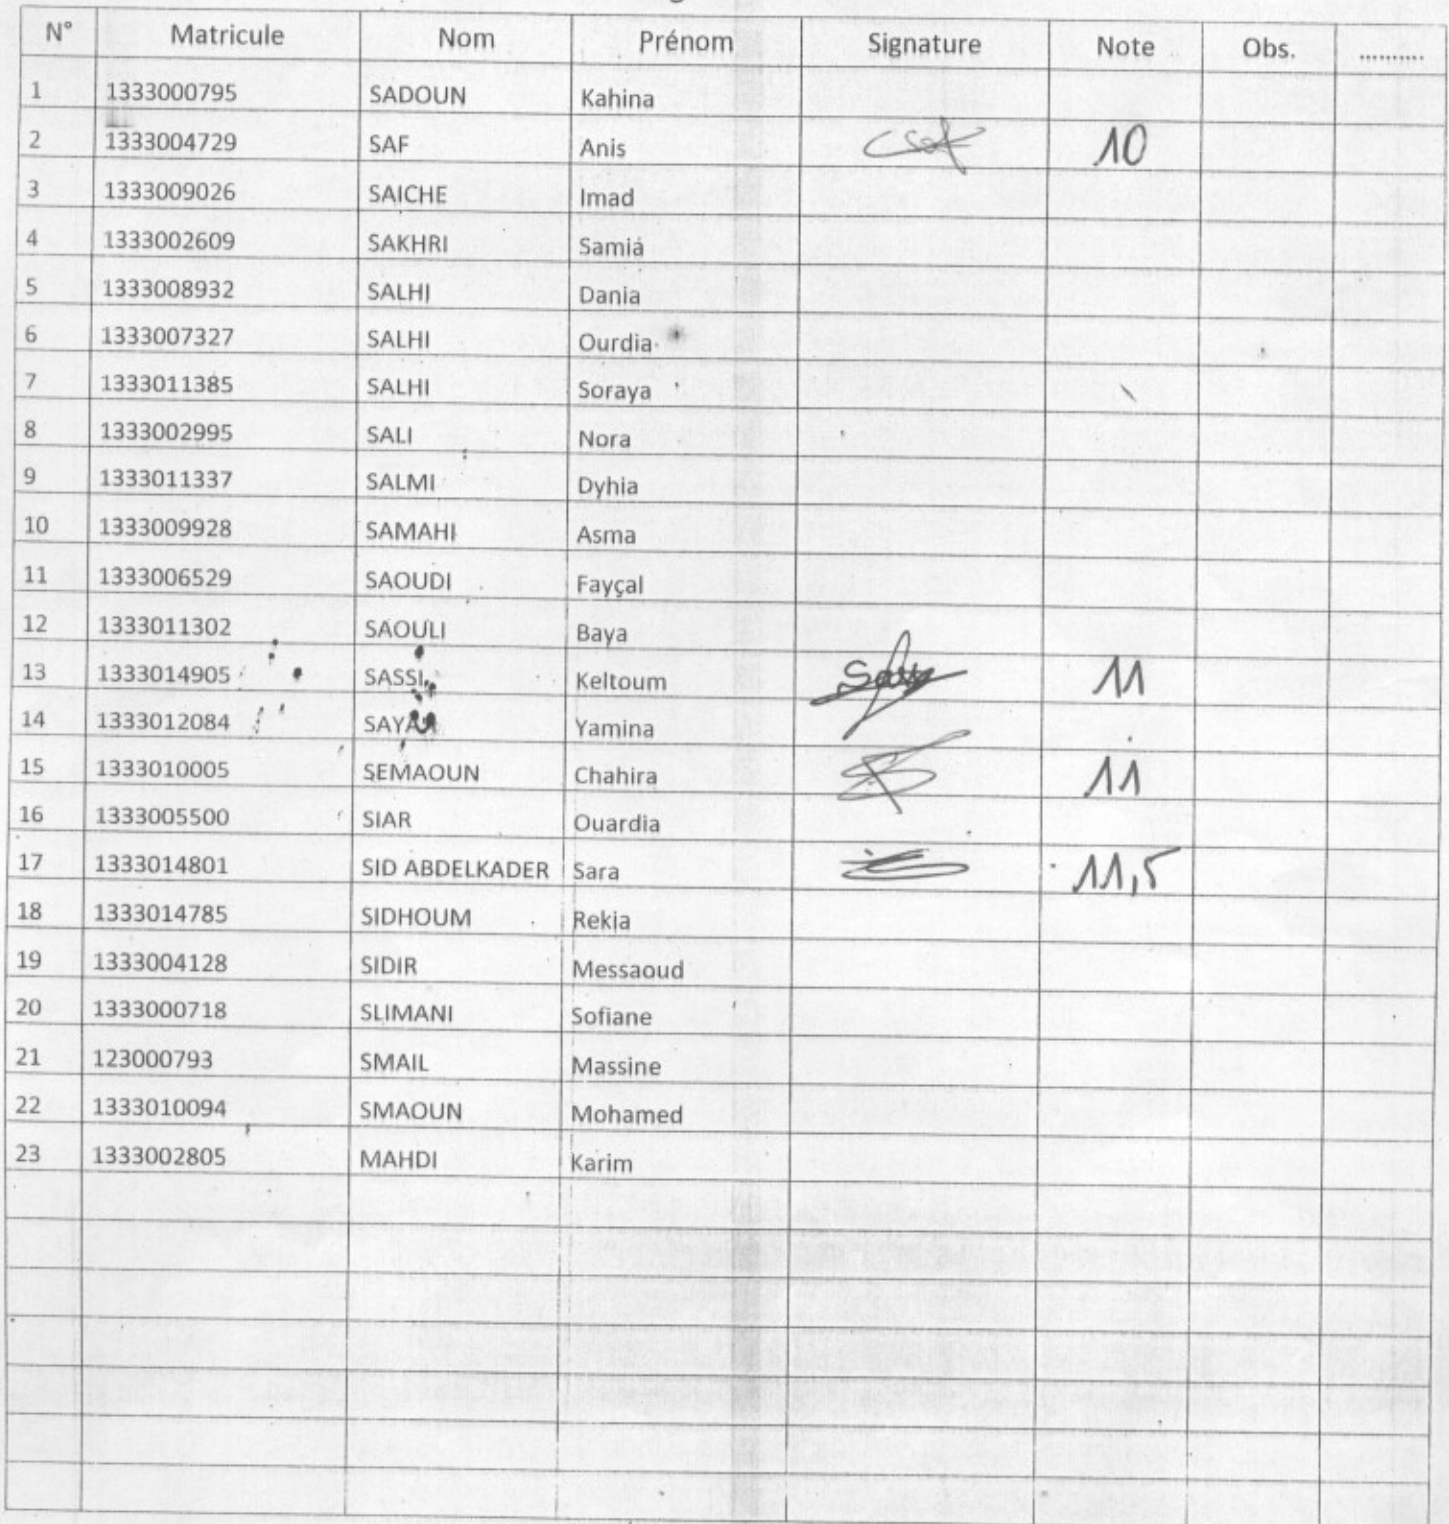 N° Matricule Nom Prénom Signature Note Obs. ..........
1 1333000795 SADOUN Kahina
2 1333004729 SAF Anis 10
3 1333009026 SAICHE Imad
4 1333002609 SAKHRI Samia
5 1333008932 SALHI Dania
6 1333007327 SALHI Ourdia
7 1333011385 SALHI Soraya
8 1333002995 SALI Nora
9 1333011337 SALMI Dyhia
10 1333009928 SAMAHI Asma
11 1333006529 SAOUDI Fayçal
12 1333011302 SAOULI Baya
13 1333014905 SASSI Keltoum 11
14 1333012084 Yamina
15 1333010005 SEMAOUN Chahira 11
16 1333005500 SIAR Ouardia
17 1333014801 SID ABDELKADER Sara 11,5
18 1333014785 SIDHOUM Rekia
19 1333004128 SIDIR Messaoud
20 1333000718 SLIMANI Sofiane
21 123000793 SMAIL Massine
22 1333010094 SMAOUN Mohamed
23 1333002805 MAHDI Karim